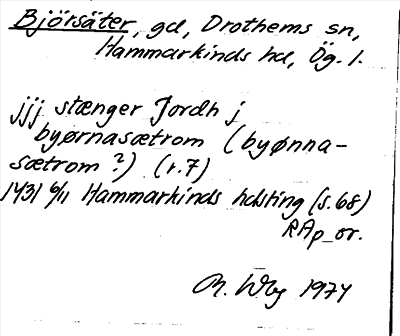 Björsäter, gd, Drothems sn,
Hammarkinds hd, Ög. l.
jjj stænger Jordh j
byørnasætrom (byønna-
sætrom?) (r.7)
1431 6/11 Hammarkinds hdsting (s.68)
RAp_or.
M. Wbg 1974